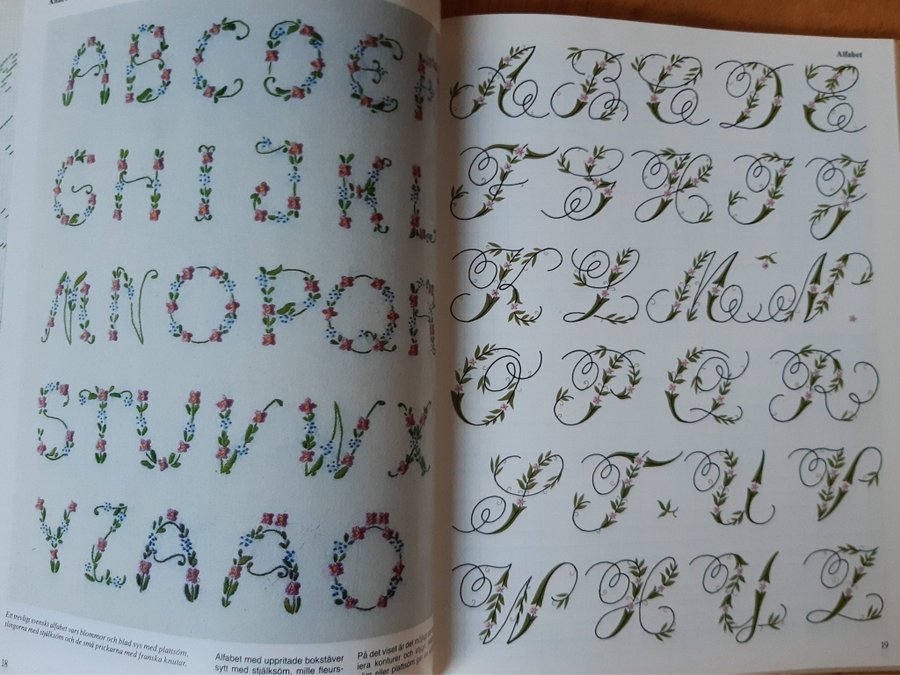 A B C D E F
G H I J K L
M N O P Q R
S T U V W X
Y Z Å Ä Ö
Ett trevligt svenskt alfabet vars blommor och blad sys med plattsöm,
slingorna med stjälksöm och de små prickarna med franska knutar.
18
Alfabet med uppritade bokstäver
sytt med stjälksöm, mille fleurs-
På det viset är det
iera konturer och
eller plattsöm
Alfabet
A B C D E
F G H I J
K L M N
O P Q R
S T U V
W X Y Z
19